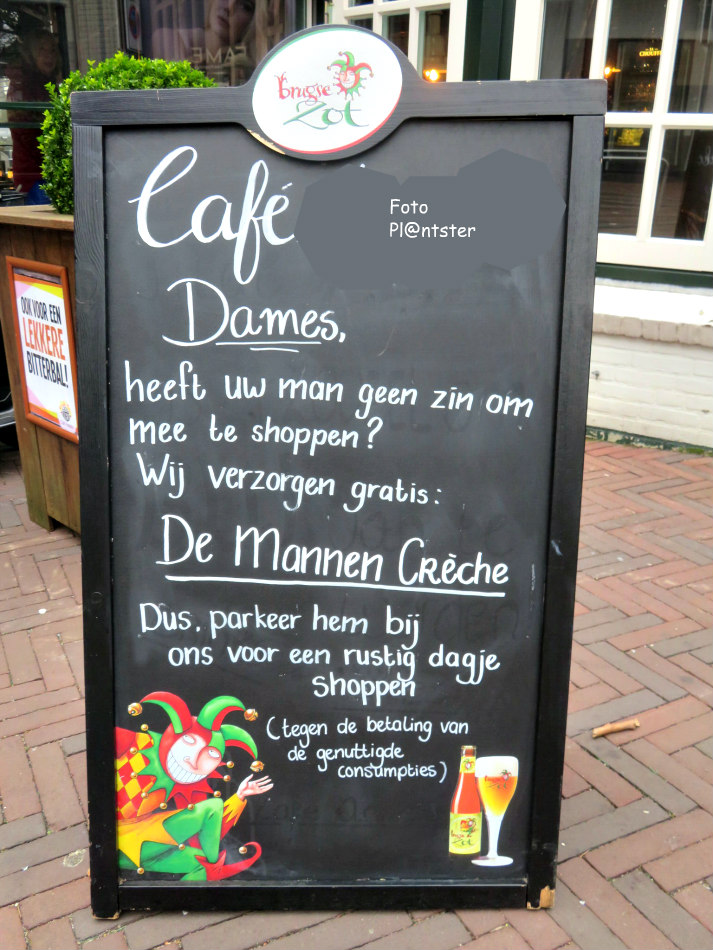 Brugse
Zot
Café
Foto
Pl@ntster
Dames,
heeft uw man geen zin om
mee te shoppen?
Wij verzorgen gratis:
De Mannen Crèche
Dus, parkeer hem bij
ons voor een rustig dagje
shoppen
(tegen de betaling van
de genuttigde
consumpties)
OOK VOOR EEN
LEKKERE
BITTERBAL!
FAME
Brugse
Zot